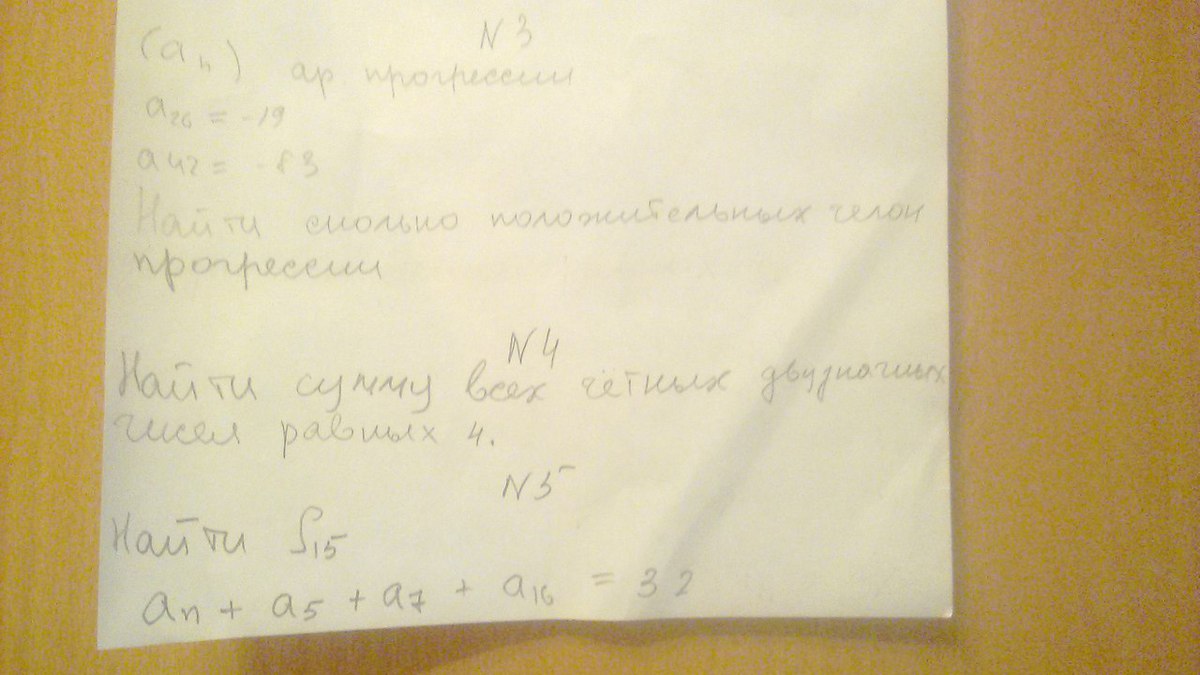 N 3
(aₙ) ар прогрессии
a₂₆ = -19
a₄₂ = -83
Найти сколько положительных челон
прогрессии
N 4
Найти сумму всех чётных двузначных
чисел равных 4.
N 5
Найти S₁₅
aₙ + a₅ + a₇ + a₁₆ = 32